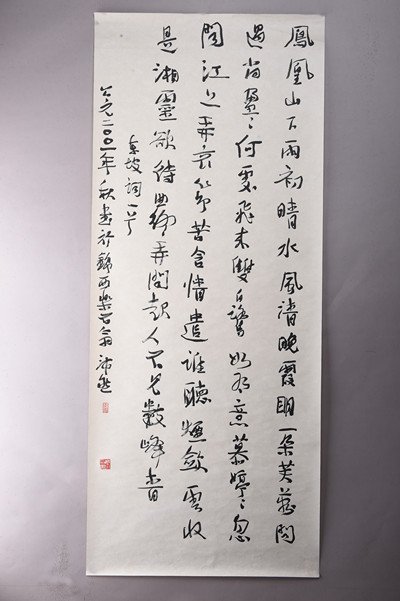 鳳凰山下雨初晴水風清晚霞明一朵芙蕖開
過尚盈々何處飛來雙白鷺如有意慕娉婷忽
聞江上弄哀箏苦含情遣誰聽煙斂雲收
是湘靈欲待曲終尋問取人不見數峰青
東坡詞一首
公元二〇〇一年秋書於錦西